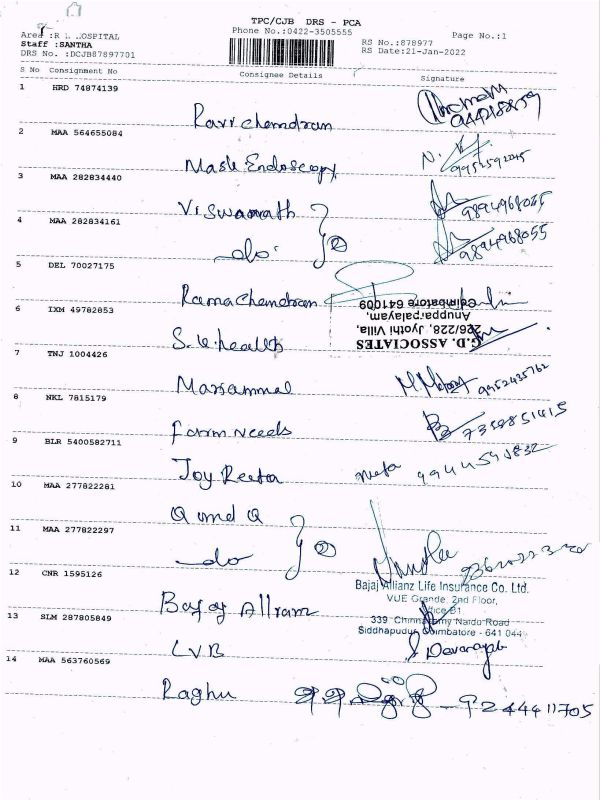 TPC/CJB DRS - PCA
Phone No.:0422-3505555
Page No.:1
Area :R HOSPITAL
Staff :SANTHA
DRS No. :DCJB87897701
RS No.:878977
RS Date:21-Jan-2022
S No Consignment No Consignee Details Signature
1 HRD 74874139
Ravichandran
2 MAA 564655084
Mask Endoscopy
3 MAA 282834440
Viswanath 9894968055
4 MAA 282834161
do 2 9894968055
5 DEL 70027175
Ramachandran
G.D. ASSOCIATES
226/228, Jyothi Villa,
Anuparpalayam,
Coimbatore 641009
6 IXM 49782853
S.K. health
7 TNJ 1004426
Mariammal 9952435762
8 NKL 7815179
Farm needs 7358851415
9 BLR 5400582711
Joy Reeta
10 MAA 277822281
Q and Q
11 MAA 277822297
do 2
12 CNR 1595126
Bajaj Allianz Life Insurance Co. Ltd.
VUE Grande, 2nd Floor,
Office B1
339, Chinnasamy Naidu Road
Siddhapudur, Coimbatore - 641 044
Bajaj Allianz
13 SLM 287805849
LVB
14 MAA 563760569
Raghu 9244411705